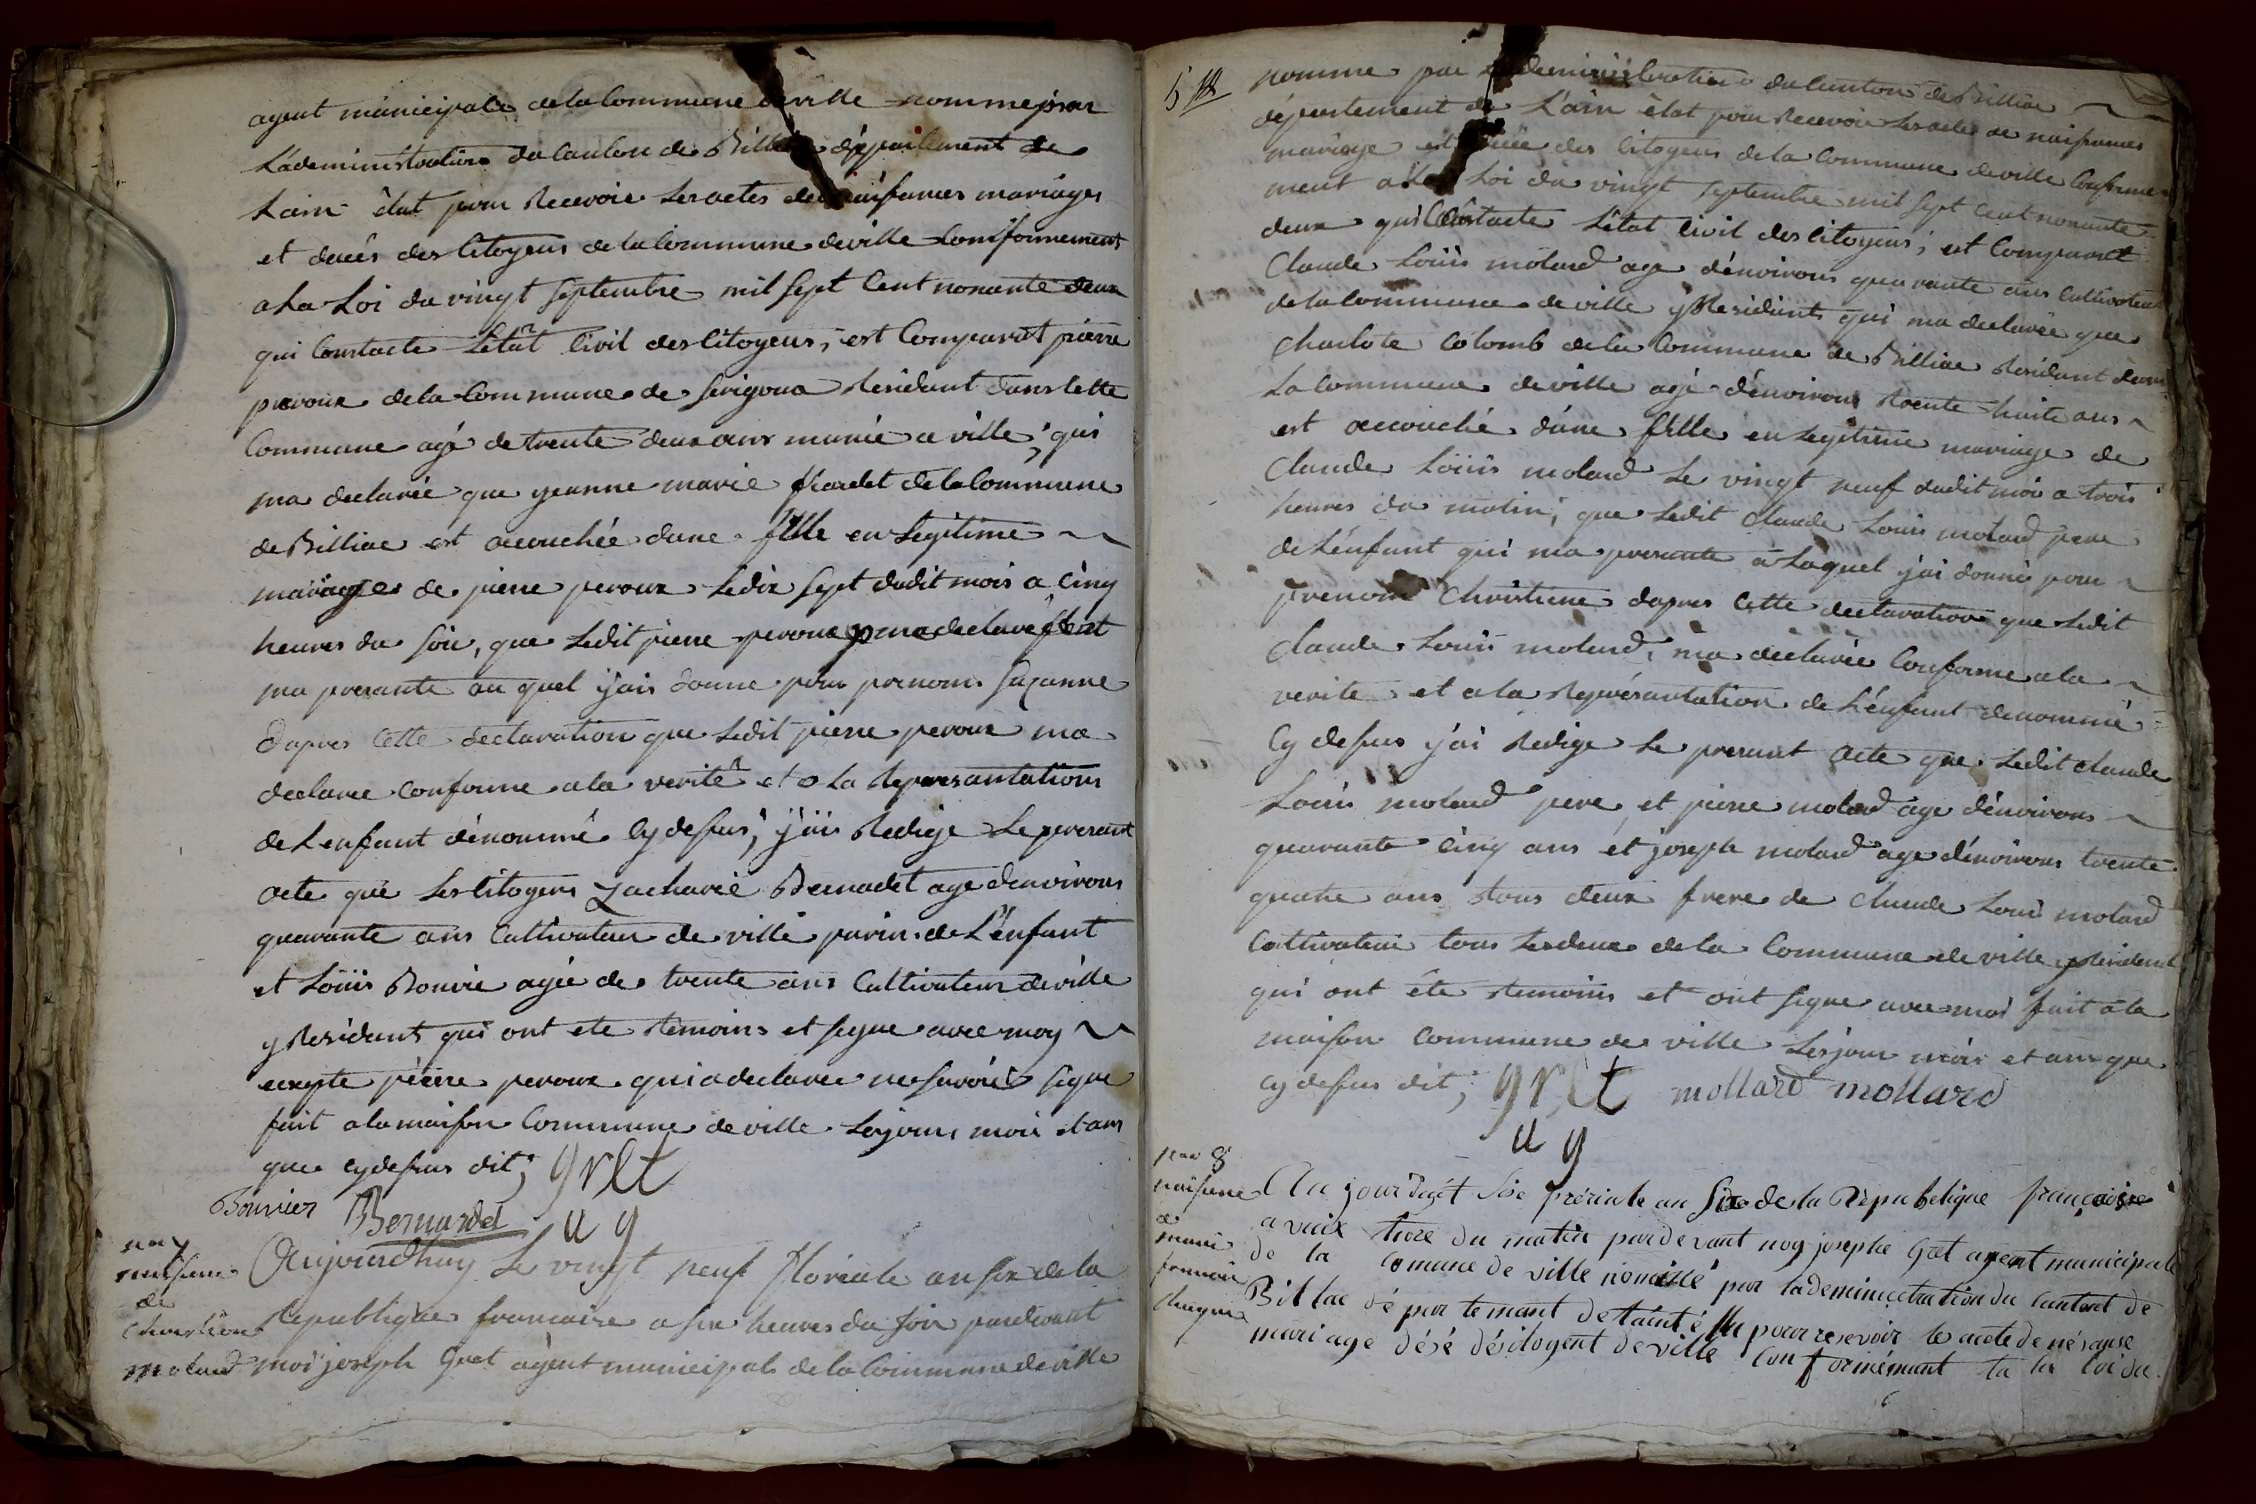 agent municipale de la Commune de ville nomme par
L'administration du Canton de Billia département de
Lain êlut pour Recevoir les actes de naissances mariages
et decès des Citoyens de la Commune de ville Conformement
a La Loi du vingt septembre mil sept Cent nonante deux
qui Constacte L'état Civil des Citoyens, est Comparut pierre
peroux de la Commune de Résidant dans cette
Commune agé de trente deux ans marié a ville, qui
ma declarée que jeanne marie de la Commune
de Billiac est acouchée dune fille en Legitime
mariage de pierre peroux Le dix sept dudit mois a Cinq
heures du soir, que Ledit pierre peroux ma declare
ma presante au quel j'ais donne pour prenoms suzanne
dapres Cette declaration que Ledit pierre peroux ma
declaree Conforme a la verité et a La Represantations
de Lenfant dénommé Cy dessus, j'ais Redige Le presant
acte que Les Citoyens Zacharie Bernadet age denvirons
quarante ans Cultivateur de ville parin de L'enfant
et Loüis Bonvié agée de trente ans Cultivateur de ville
y Residants qui ont ete temoins et signe avec moy
excepte pierre peroux qui a declaree ne savoir signe
fait a la maison Commune de ville Les jours mois et ans
que cy dessus dit; gret
Bonvier Bernardet a g
n° 7
naissance
de
Christine
molard
Aujourdhuy Le vingt neuf floreale an six de la
Republique francaise a six heures du soir pardevant
moi joseph Gret agent municipale de la Commune de ville
5
nomme par Ladeministeration du Canton de Billiac
département de L'ain êlat pour Recevoir Les actes de naissances
mariage et des Citoyens de la Commune de ville Conforme
ment a La Loi du vingt septembre mil sept Cent nonante
deux qui Constacte L'état Civil des Citoyens, est Comparut
Claude Loüis molard age d'environs quarante ans Cultivateur
de la Commune de ville y Residant qui ma declarée que
Charlote Colomb de la Commune de Billiac Residant dans
La Commune de ville agé d'environs trente huite ans
est accouché d'une fille en Legitime mariage de
Claude Loüis molard Le vingt neuf dudit mois a trois
heures du matin, que Ledit Claude Louis molard pere
de L'enfant qui ma presante a Laquel j'ai donné pour
prenom Christine dapres Cette declaration que Ledit
Claude Louis molard, ma déclarée Conforme a la
verite et a la Représantation de L'enfant denommé
Cy dessus j'ai Redige Le presant acte que Ledit Claude
Loüis molard pere et pierre molard age d'environs
quarante Cinq ans et joseph molard age d'environs trente
quatre ans tous deux frere de Claude Louis molard
Cultivateur tous Les deux de la Commune de ville y Residant
qui ont été temoins et ont signe avec moi fait a la
maison Commune de ville Les jour mois et ans que
cy dessus dit; gret mollard mollard
a g
n° 8
naissance
de
marie
françoise
Au jourdeget sise prériale an six de la République françoise
a vuix hore du matin pardevant noy josephe Gret agent municipale
de la Comune de ville nomme par lademinictration du Canton de
Billac dé partemant de pour resevoir le acete de nésanse
mariage désé désitogent de ville Conformémant ta la loi du